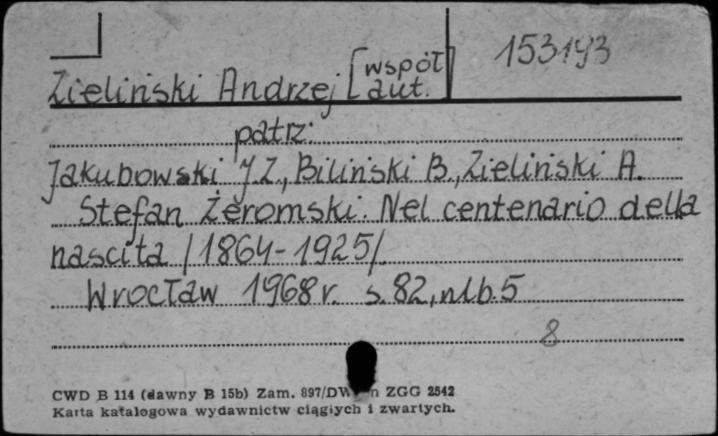 153193
Zieliński Andrzej [współ
aut.]
patrz:
Jakubowski J.Z., Biliński B., Zieliński A.
Stefan Żeromski. Nel centenario della
nascita /1864-1925/.
Wrocław 1968 r. s. 82, nlb. 5
8
CWD B 114 (dawny B 15b) Zam. 897/DW n ZGG 2542
Karta katalogowa wydawnictw ciągłych i zwartych.